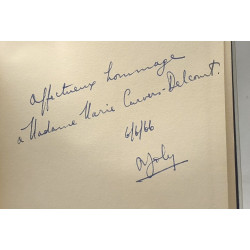 Affectueux hommage
à Madame Marie Curvers-Delcourt.
6/6/66
AJoly